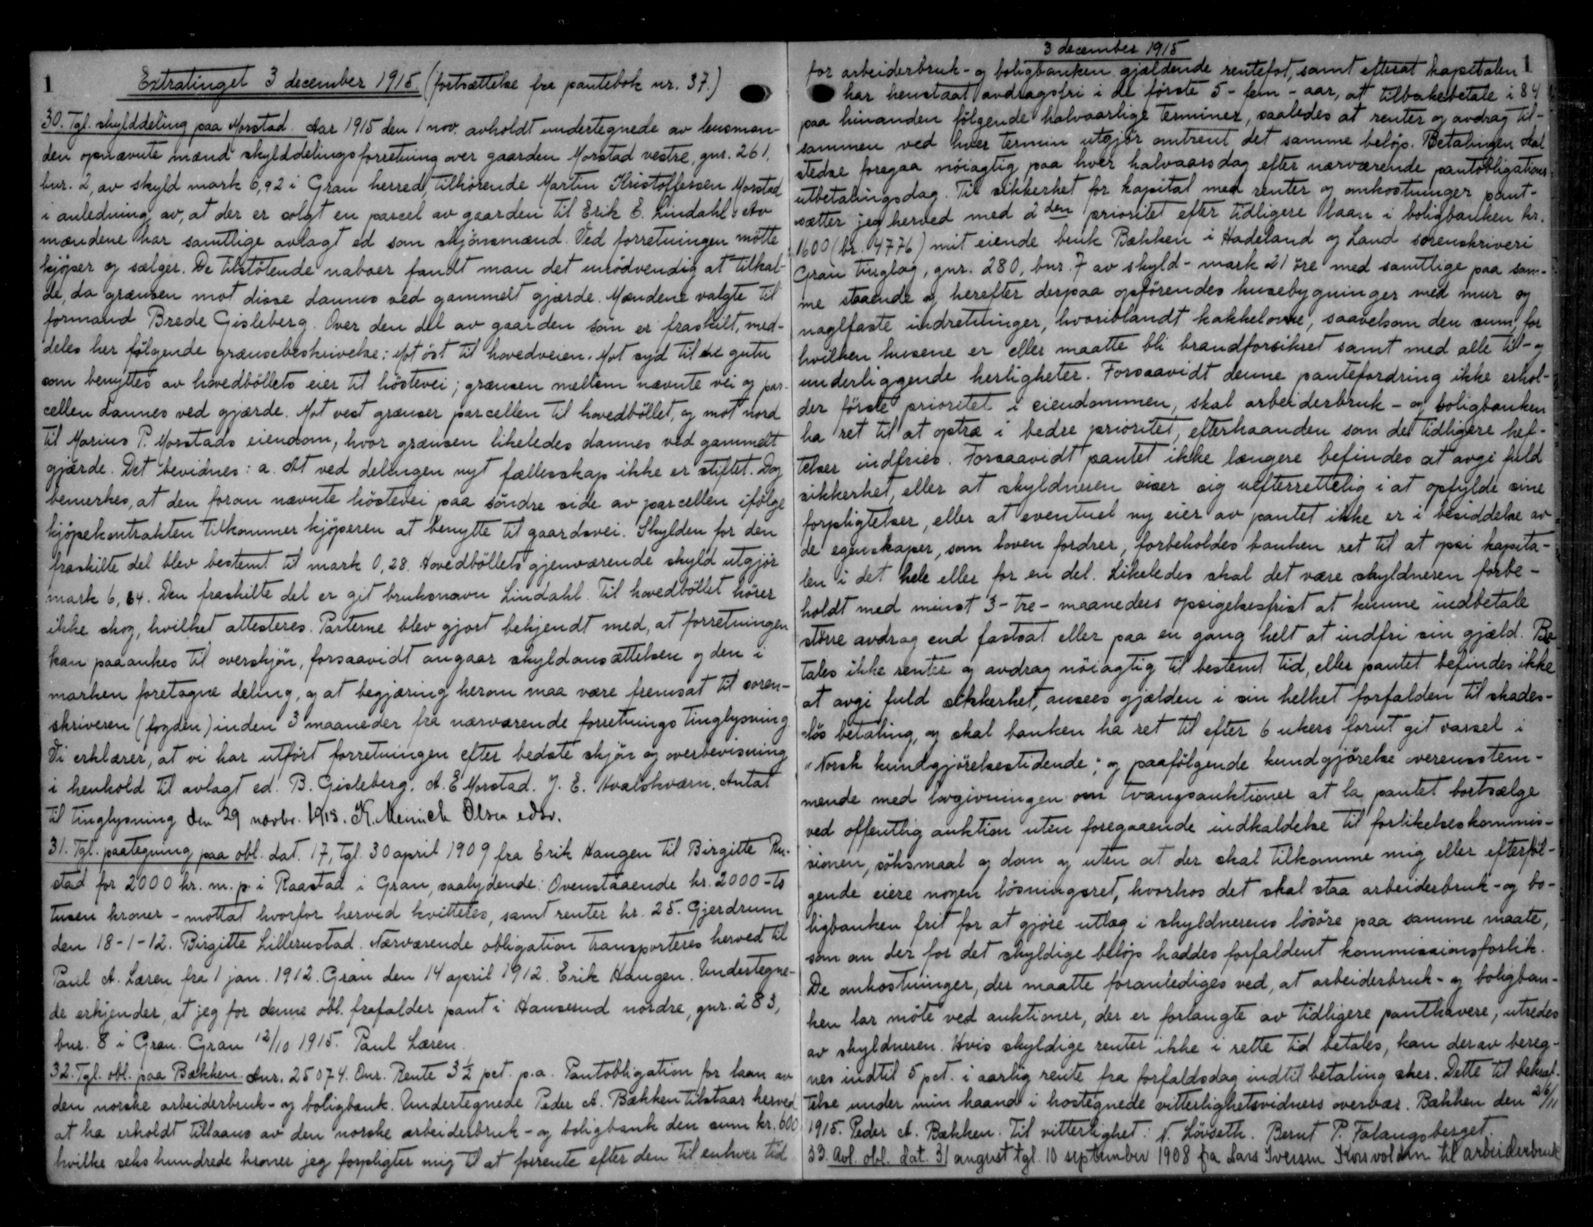 1
Extratinget 3 december 1915 (fortsættelse fra pantebok nr. 37.)
30. Tgl. skylddeling paa Morstad. Aar 1915 den 1 nov. avholdt undertegnede av lensman-
den opnævnte mænd skylddelingsforretning over gaarden Morstad vestre, gnr. 261,
bnr. 2, av skyld mark 6,92 i Gran herred, tilhörende Martin Kristoffersen Morstad
i anledning av, at der er solgt en parcel av gaarden til Erik E. Lindahl. Av
mændene har samtlige avlagt ed som skjönsmænd. Ved forretningen mötte
kjöper og sælger. De tilstötende naboer fandt man det unödvendig at tilkal-
de, da grænsen mot disse dannes ved gammelt gjærde. Mændene valgte til
formand Brede Gisleberg. Over den del av gaarden som er fraskilt, med-
deles her fölgende grænsebeskrivelse: Mot öst til hovedveien. Mot syd til gutu
som benyttes av hovedböllets eier til höstevei; grænsen mellem nævnte vei og par-
cellen dannes ved gjærde. Mot vest grænser parcellen til hovedböllet, og mot nord
til Marius P. Morstads eiendom, hvor grænsen likeledes dannes ved gammelt
gjærde. Det bevidnes: a. At ved delingen nyt fællesskap ikke er stiftet. Dog
bemerkes, at den foran nævnte höstevei paa söndre side av parcellen ifölge
kjöpekontrakten tilkommer kjöperen at benytte til gaardsvei. Skylden for den
fraskilte del blev bestemt til mark 0,28. Hovedböllets gjenværende skyld utgjör
mark 6,64. Den fraskilte del er git bruksnavn Lindahl. Til hovedböllet hörer
ikke skog, hvilket attesteres. Parterne blev gjort bekjendt med, at forretningen
kan paaankes til overskjön, forsaavidt angaar skyldansættelsen og den i
marken foretagne deling, og at begjæring herom maa være fremsat til soren-
skriveren (fogden) inden 3 maaneder fra nærværende forretnings tinglysning
Vi erklærer, at vi har utfört forretningen efter bedste skjön og overbevisning
i henhold til avlagt ed. B. Gisleberg. A. E. Morstad. J. E. Hvalskværn. Antat
til tinglysning den 29 novbr. 1915. K. Meinich Olsen edsv.
31. Tgl. paategning paa obl. dat. 17, tgl. 30 april 1909 fra Erik Haugen til Birgitte Ru-
stad for 2000 kr. m. p. i Raastad i Gran, saalydende: Ovenstaaende kr. 2000 - to
tusen kroner - mottat hvorfor herved kvitteres, samt renter kr. 25. Gjerdrum
den 18-1-12. Birgitte Lillerustad. Nærværende obligation transporteres herved til
Paul A. Læren fra 1 jan. 1912. Gran den 14 april 1912. Erik Haugen. Undertegne-
de erkjender, at jeg for denne obl. frafalder pant i Hanserud nordre, gnr. 283,
bnr. 8 i Gran. Gran 12/10 1915. Paul Læren.
32. Tgl. obl. paa Bækken. Anr. 25074. Onr. Rente 3½ pct. p.a. Pantobligation for laan av
den norske arbeiderbruk- og boligbank. Undertegnede Peder A. Bækken tilstaar herved
at ha erholdt tillaans av den norske arbeiderbruk- og boligbank den sum kr. 600
hvilke seks hundrede kroner jeg forpligter mig til at forrente efter den til enhver tid
3 december 1915
1
for arbeiderbruk- og boligbanken gjældende rentefot, samt efterat kapitalen
har henstaat avdragsfri i de förste 5 - fem - aar, at tilbakebetale i 84
paa hinanden fölgende halvaarlige terminer, saaledes at renter og avdrag til-
sammen ved hver termin utgjör omtrent det samme belöp. Betalingen skal
stedse foregaa nöiagtig paa hver halvaarsdag efter nærværende pantobligations
utbetalingsdag. Til sikkerhet for kapital med renter og omkostninger pant-
sætter jeg herved med 2den prioritet efter tidligere laan i boligbanken kr.
1600 (br. 4776) mit eiende bruk Bækken i Hadeland og Land sorenskriveri
Gran tinglag, gnr. 280, bnr. 7 av skyld-mark 21 öre med samtlige paa sam-
me staaende og herefter derpaa opförendes husebygninger med mur og
naglfaste indretninger, hvoriblandt kakkelovne, saavelsom den sum, for
hvilken husene er eller maatte bli brandforsikret samt med alle til- og
underliggende herligheter. Forsaavidt denne pantefordring ikke erhol-
der förste prioritet i eiendommen, skal arbeiderbruk- og boligbanken
ha ret til at optræ i bedre prioritet, efterhaanden som de tidligere hef-
telser indfries. Forsaavidt pantet ikke længere befindes at avgi fuld
sikkerhet, eller at skyldneren viser sig uefterrettelig i at opfylde sine
forpligtelser, eller at eventuel ny eier av pantet ikke er i besiddelse av
de egenskaper, som loven fordrer, forbeholdes banken ret til at opsi kapita-
len i det hele eller for en del. Likeledes skal det være skyldneren forbe-
holdt med minst 3 - tre - maaneders opsigelsesfrist at kunne indbetale
större avdrag end fastsat eller paa en gang helt at indfri sin gjæld. Be-
tales ikke renter og avdrag nöiagtig til bestemt tid, eller pantet befindes ikke
at avgi fuld sikkerhet, ansees gjælden i sin helhet forfalden til skades-
lös betaling, og skal banken ha ret til efter 6 ukers forut git varsel i
"Norsk kundgjörelsestidende", og paafölgende kundgjörelse overensstem-
mende med lovgivningen om tvangsauktioner at la pantet bortsælge
ved offentlig auktion uten foregaaende indkaldelse til forlikelseskommis-
sionen, söksmaal og dom og uten at der skal tilkomme mig eller efterföl-
gende eiere nogen lösningsret, hvorhos det skal staa arbeiderbruk- og bo-
ligbanken frit for at gjöre utlæg i skyldnerens lösöre paa samme maate,
som om der for det skyldige belöp haddes forfaldent kommissionsforlik.
De omkostninger, der maatte foranlediges ved, at arbeiderbruk- og boligban-
ken lar möte ved auktioner, der er forlangte av tidligere panthavere, utredes
av skyldneren. Hvis skyldige renter ikke i rette tid betales, kan derav bereg-
nes indtil 5 pct. i aarlig rente fra forfaldsdag indtil betaling sker. Dette til bekræf-
telse under min haand i hostegnede vitterlighetsvidners overvær. Bækken den 26/11
1915. Peder A. Bækken. Til vitterlighet: N. Lövseth. Bernt P. Falangsberget.
33. Avl. obl. dat. 31 august tgl. 10 september 1908 fra Lars Iversen Korsvolden til arbeiderbruk